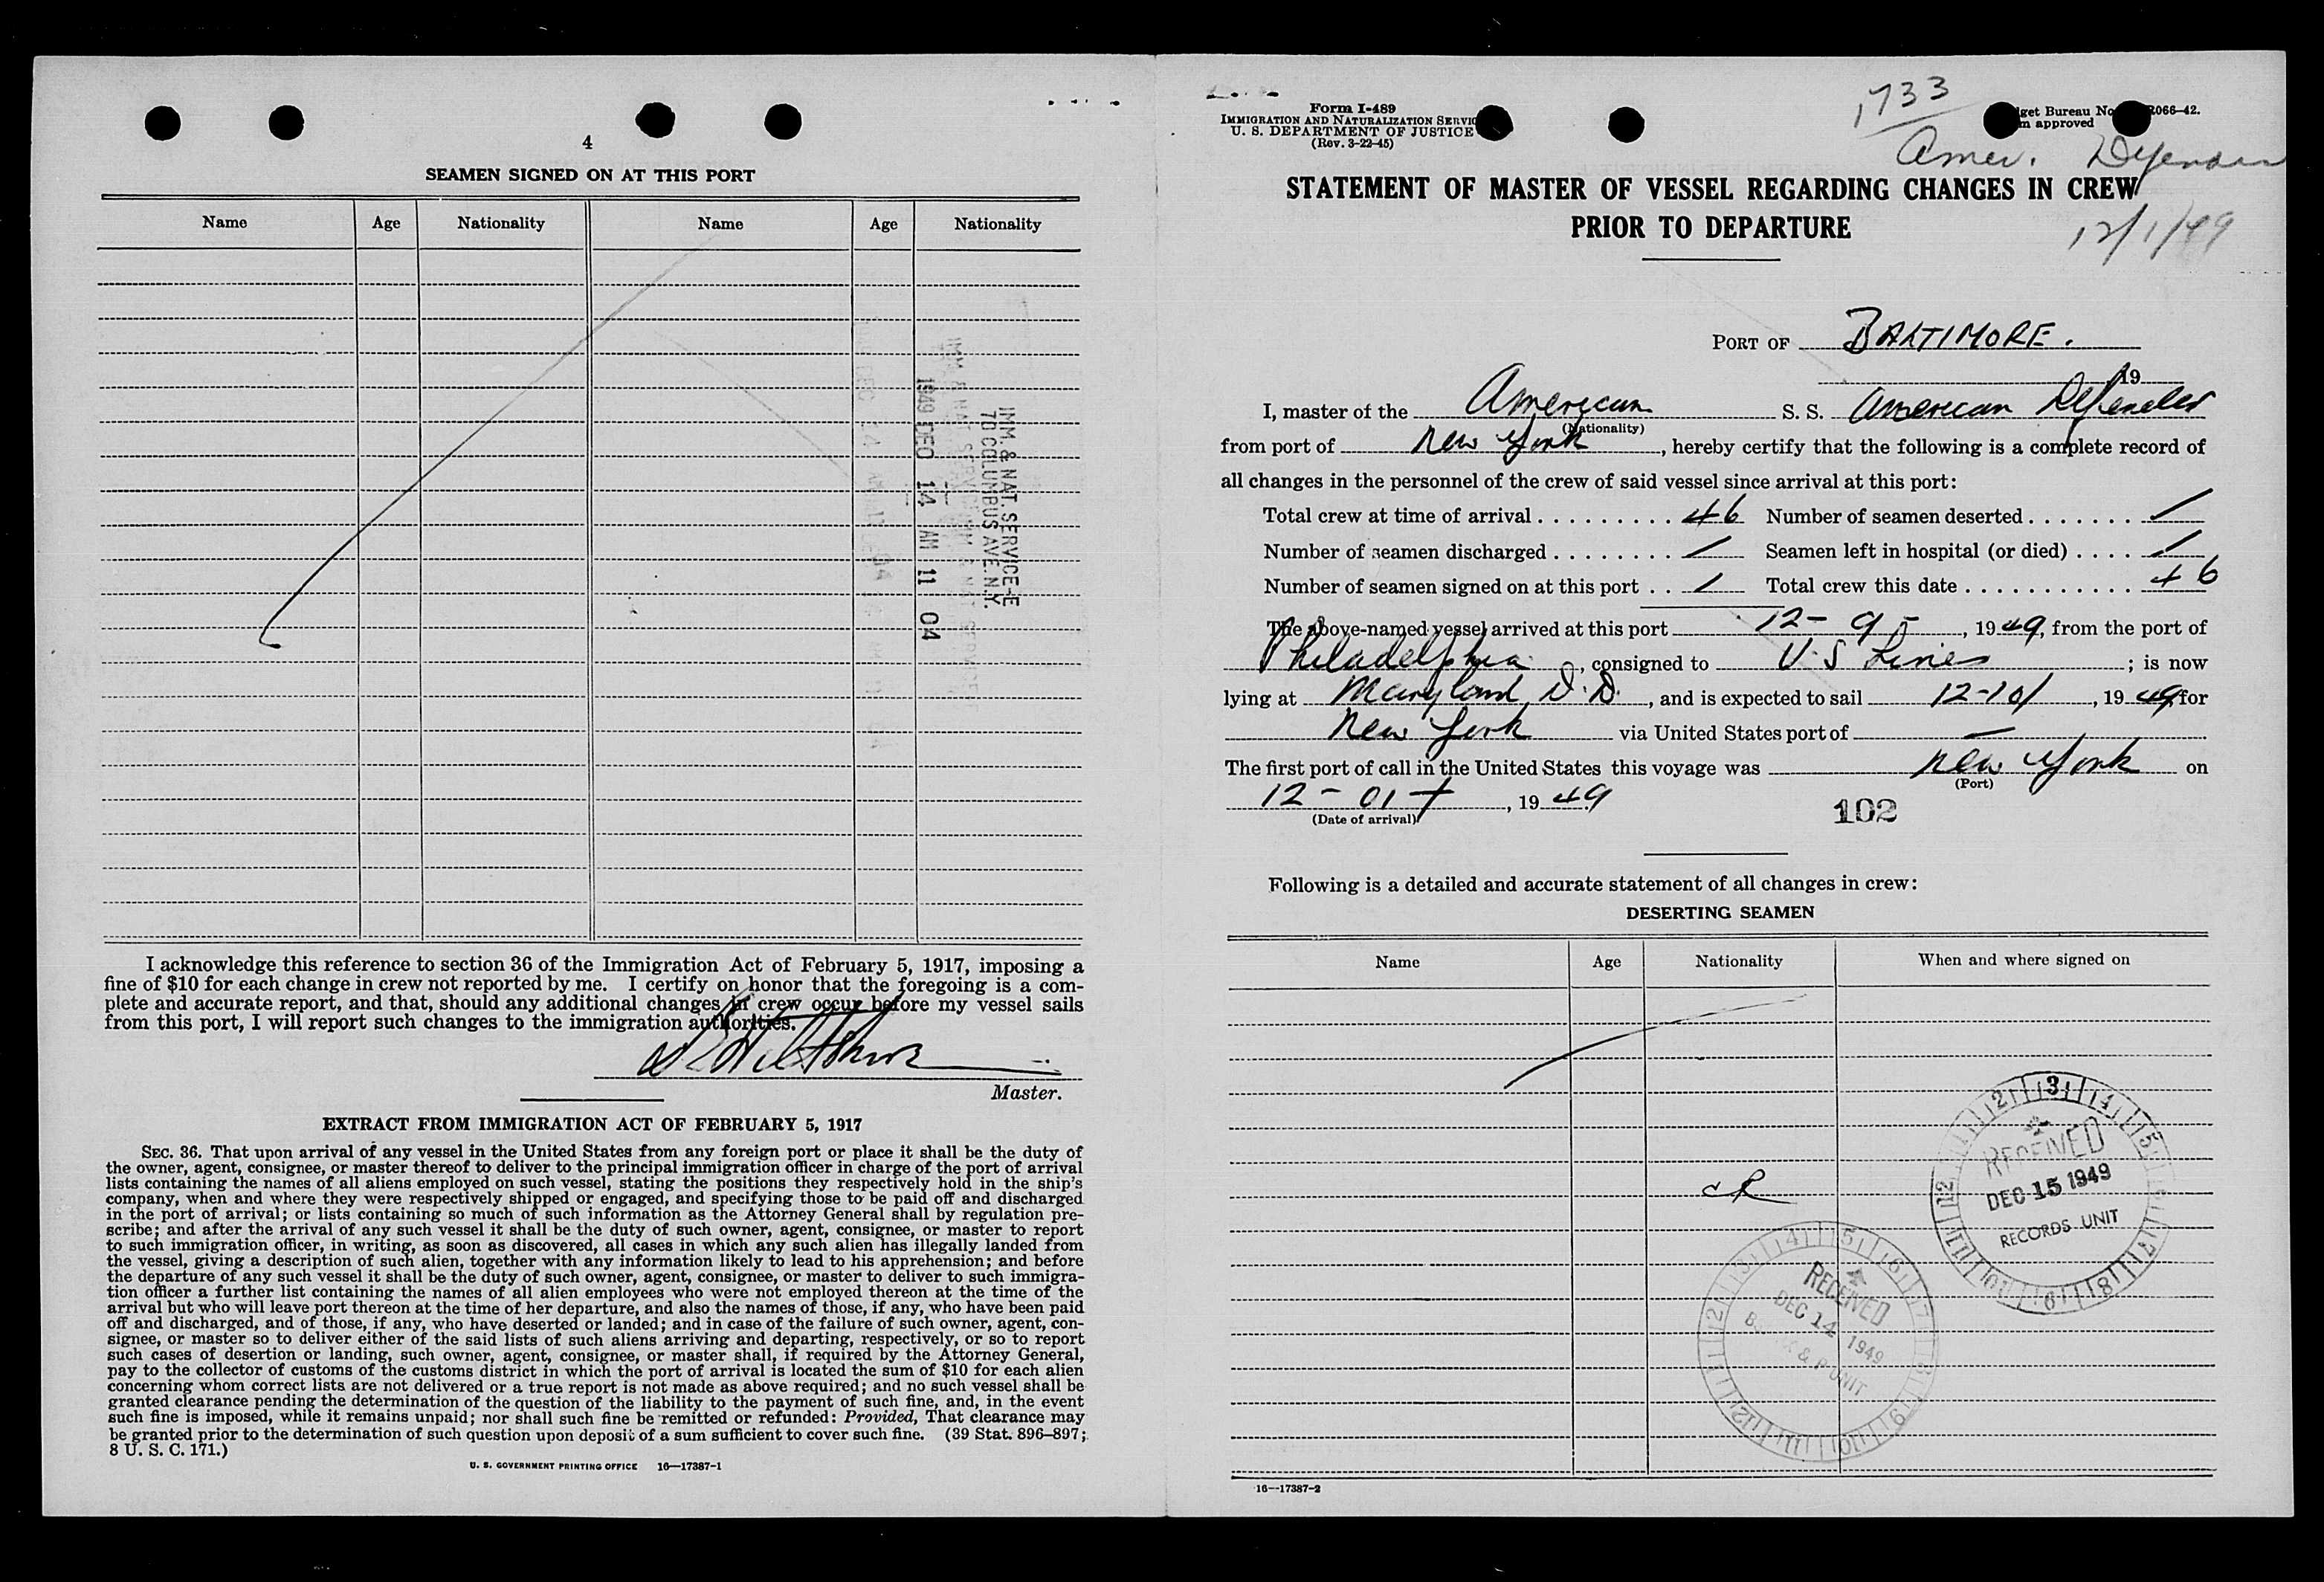 4
SEAMEN SIGNED ON AT THIS PORT
Name Age Nationality Name Age Nationality
IMM. & NAT. SERVICE-E
70 COLUMBUS AVE. N.Y.
1949 DEC 14 AM 11 04
I acknowledge this reference to section 36 of the Immigration Act of February 5, 1917, imposing a
fine of $10 for each change in crew not reported by me. I certify on honor that the foregoing is a com-
plete and accurate report, and that, should any additional changes in crew occur before my vessel sails
from this port, I will report such changes to the immigration authorities.
Master.
EXTRACT FROM IMMIGRATION ACT OF FEBRUARY 5, 1917
SEC. 36. That upon arrival of any vessel in the United States from any foreign port or place it shall be the duty of
the owner, agent, consignee, or master thereof to deliver to the principal immigration officer in charge of the port of arrival
lists containing the names of all aliens employed on such vessel, stating the positions they respectively hold in the ship's
company, when and where they were respectively shipped or engaged, and specifying those to be paid off and discharged
in the port of arrival; or lists containing so much of such information as the Attorney General shall by regulation pre-
scribe; and after the arrival of any such vessel it shall be the duty of such owner, agent, consignee, or master to report
to such immigration officer, in writing, as soon as discovered, all cases in which any such alien has illegally landed from
the vessel, giving a description of such alien, together with any information likely to lead to his apprehension; and before
the departure of any such vessel it shall be the duty of such owner, agent, consignee, or master to deliver to such immigra-
tion officer a further list containing the names of all alien employees who were not employed thereon at the time of the
arrival but who will leave port thereon at the time of her departure, and also the names of those, if any, who have been paid
off and discharged, and of those, if any, who have deserted or landed; and in case of the failure of such owner, agent, con-
signee, or master so to deliver either of the said lists of such aliens arriving and departing, respectively, or so to report
such cases of desertion or landing, such owner, agent, consignee, or master shall, if required by the Attorney General,
pay to the collector of customs of the customs district in which the port of arrival is located the sum of $10 for each alien
concerning whom correct lists are not delivered or a true report is not made as above required; and no such vessel shall be
granted clearance pending the determination of the question of the liability to the payment of such fine, and, in the event
such fine is imposed, while it remains unpaid; nor shall such fine be remitted or refunded: Provided, That clearance may
be granted prior to the determination of such question upon deposit of a sum sufficient to cover such fine. (39 Stat. 896–897;
8 U. S. C. 171.)
U. S. GOVERNMENT PRINTING OFFICE 16—17387-1
Form I-489
IMMIGRATION AND NATURALIZATION SERVIC
U. S. DEPARTMENT OF JUSTICE
(Rev. 3-22-45)
1733
get Bureau No. R066-42.
m approved
Amer. Defender
12/1/49
STATEMENT OF MASTER OF VESSEL REGARDING CHANGES IN CREW
PRIOR TO DEPARTURE
PORT OF BALTIMORE.
19
I, master of the American S. S. American Defender
(Nationality)
from port of New York, hereby certify that the following is a complete record of
all changes in the personnel of the crew of said vessel since arrival at this port:
Total crew at time of arrival 46 Number of seamen deserted /
Number of seamen discharged / Seamen left in hospital (or died) /
Number of seamen signed on at this port / Total crew this date 46
The above-named vessel arrived at this port 12-9, 1949, from the port of
Philadelphia, consigned to U.S Lines; is now
lying at Maryland D.D., and is expected to sail 12-10, 1949 for
New York via United States port of —
The first port of call in the United States this voyage was New York on
(Port)
12-01, 1949
(Date of arrival)
102
Following is a detailed and accurate statement of all changes in crew:
DESERTING SEAMEN
Name Age Nationality When and where signed on
RECEIVED
DEC 15 1949
RECORDS UNIT
CR
RECEIVED
DEC 14 1949
& P UNIT
16—17387-2